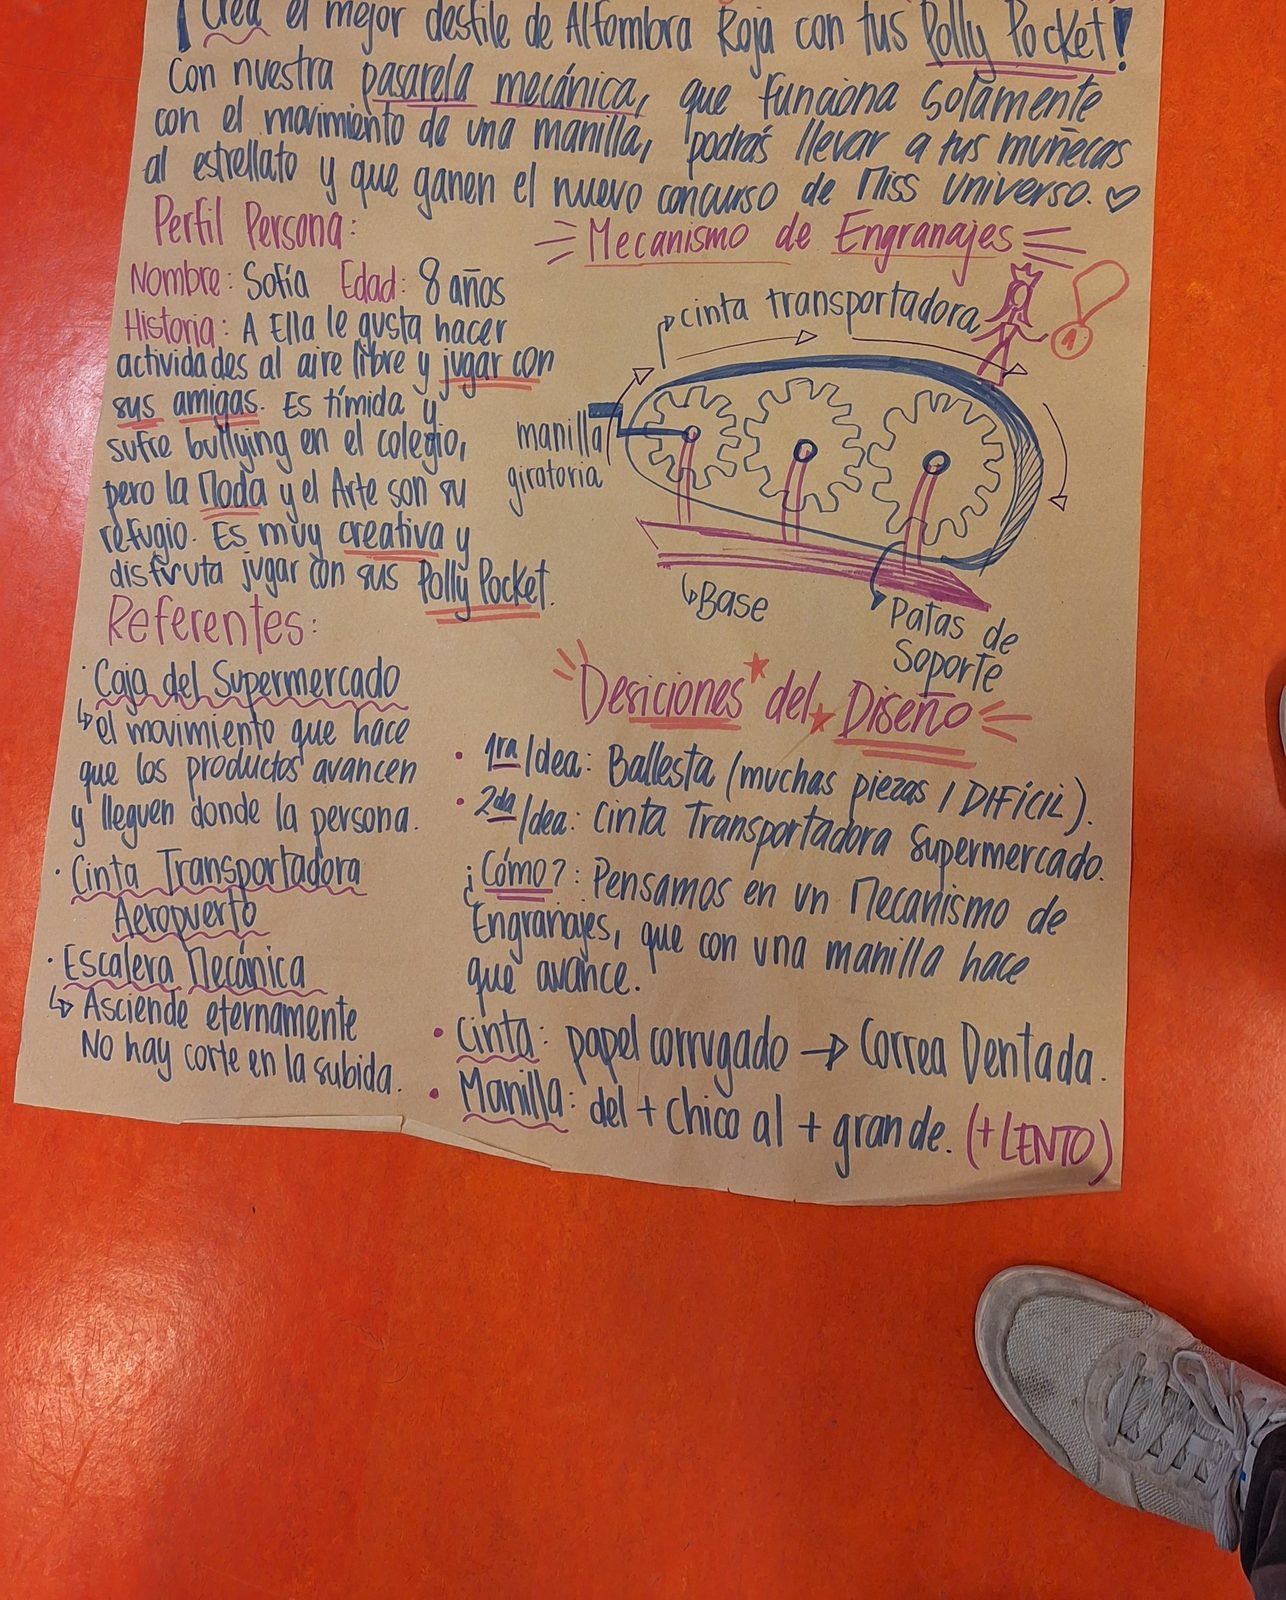 ¡Crea el mejor desfile de Alfombra Roja con tus Polly Pocket!
Con nuestra pasarela mecánica, que funciona solamente
con el movimiento de una manilla, podrás llevar a tus muñecas
al estrellato y que ganen el nuevo concurso de Miss Universo.
Perfil Persona:
Nombre: Sofía Edad: 8 años
Historia: A Ella le gusta hacer
actividades al aire libre y jugar con
sus amigas. Es tímida y
sufre bullying en el colegio,
pero la Moda y el Arte son su
refugio. Es muy creativa y
disfruta jugar con sus Polly Pocket.
Referentes:
· Caja del Supermercado
↳ el movimiento que hace
que los productos avancen
y lleguen donde la persona.
· Cinta Transportadora
Aeropuerto
· Escalera Mecánica
↳ Asciende eternamente
No hay corte en la subida.
Mecanismo de Engranajes
cinta transportadora
1
manilla
giratoria
Base
Patas de
Soporte
Desiciones del Diseño
• 1ra Idea: Ballesta (muchas piezas / DIFÍCIL).
• 2da Idea: Cinta Transportadora Supermercado.
¿Cómo?: Pensamos en un Mecanismo de
Engranajes, que con una manilla hace
que avance.
• Cinta: papel corrugado → Correa Dentada.
• Manilla: del + chico al + grande. (+ LENTO)